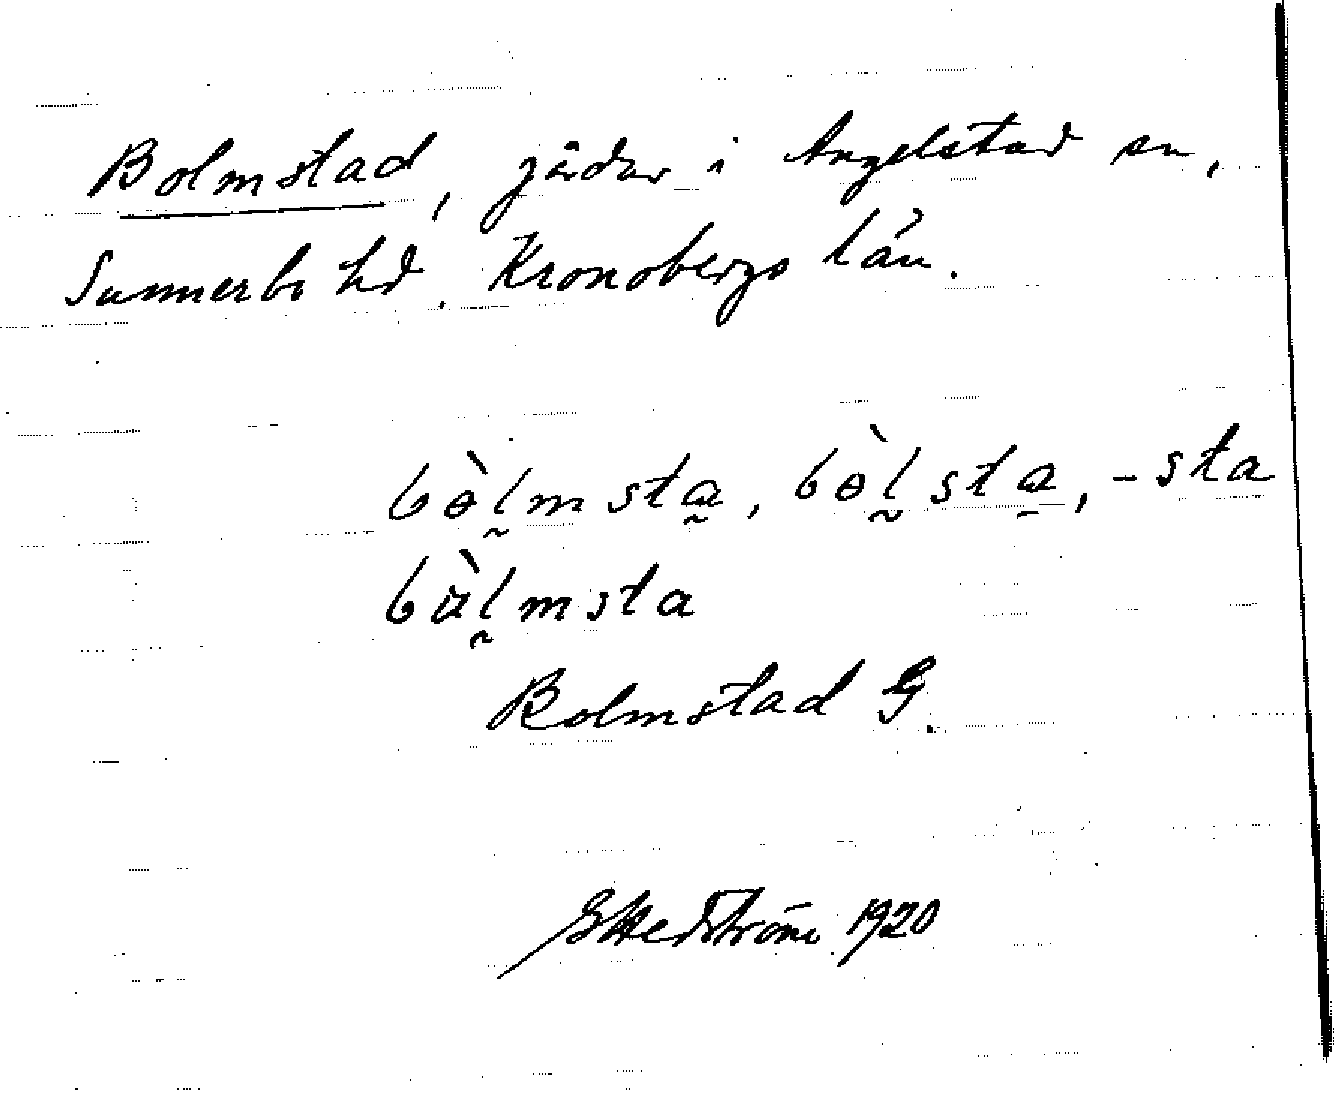 Bolmstad, gårdar i Angelstad sn,
Sunnerbo hd. Kronobergs län.
bɵ̀l̰msta̰, bɵ̀l̰sta̱, -sta
bù̈l̰msta
Bolmstad G.
G Hedström 1920